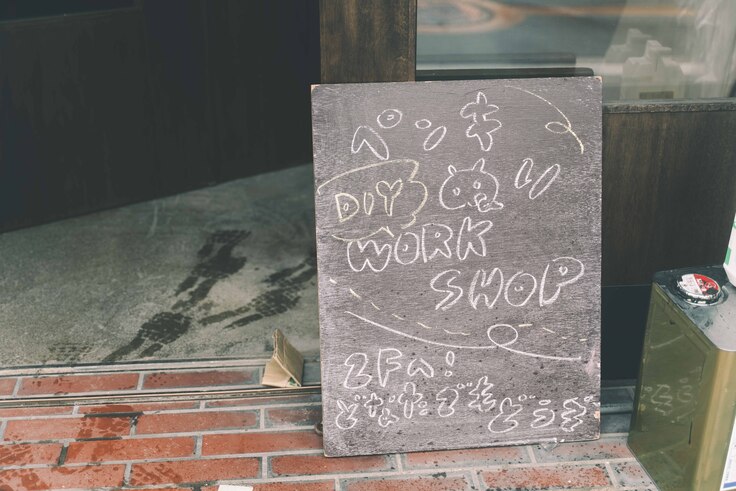 ペンキ
DIY ぬり
WORK
SHOP
2Fへ!
どなたでもどうぞ